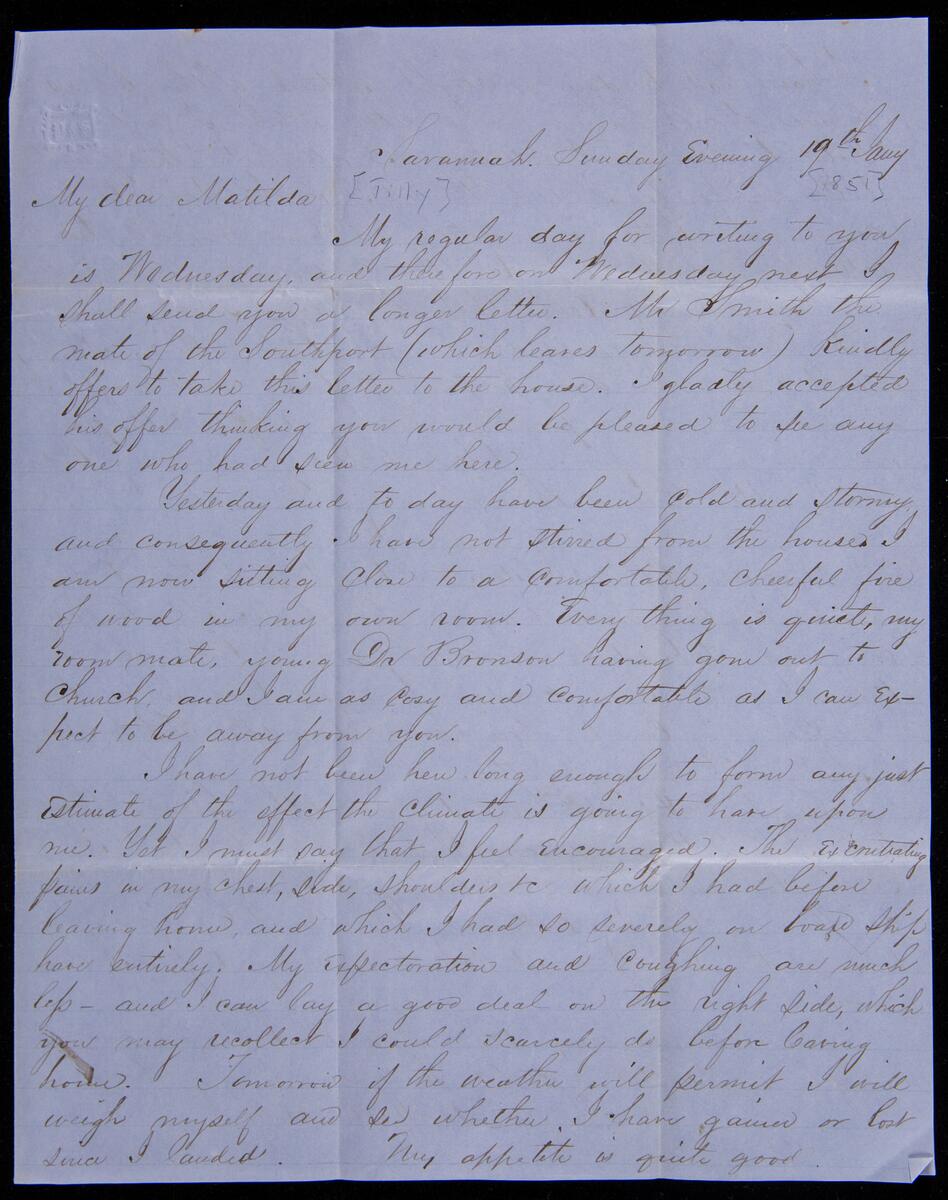 Savannah. Sunday Evening 19th Jany
My dear Matilda [Tilly] [1851]
My regular day for writing to you
is Wednesday, and therefore on Wednesday next I
shall send you a longer letter. Mr Smith the
mate of the Southport (which leaves tomorrow) kindly
offers to take this letter to the house. I gladly accepted
his offer thinking you would be pleased to see any
one who had seen me here.
Yesterday and to day have been cold and stormy,
and consequently I have not stirred from the house. I
am now sitting close to a comfortable, cheerful fire
of wood in my own room. Every thing is quiete, my
room mate, young Dr Bronson having gone out to
Church, and I am as cosy and comfortable as I can ex-
pect to be away from you.
I have not been here long enough to form any just
estimate of the effect the climate is going to have upon
me. Yet I must say that I feel encouraged. The excrutiating
pains in my chest, side, shoulders &c which I had before
leaving home, and which I had so severely on board ship
have entirely. My expectoration and coughing are much
less - and I can lay a good deal on the right side, which
you may recollect I could scarcely do before leaving
home. Tomorrow if the weather will permit I will
weigh myself and see whether I have gained or lost
since I landed. My appetite is quite good.